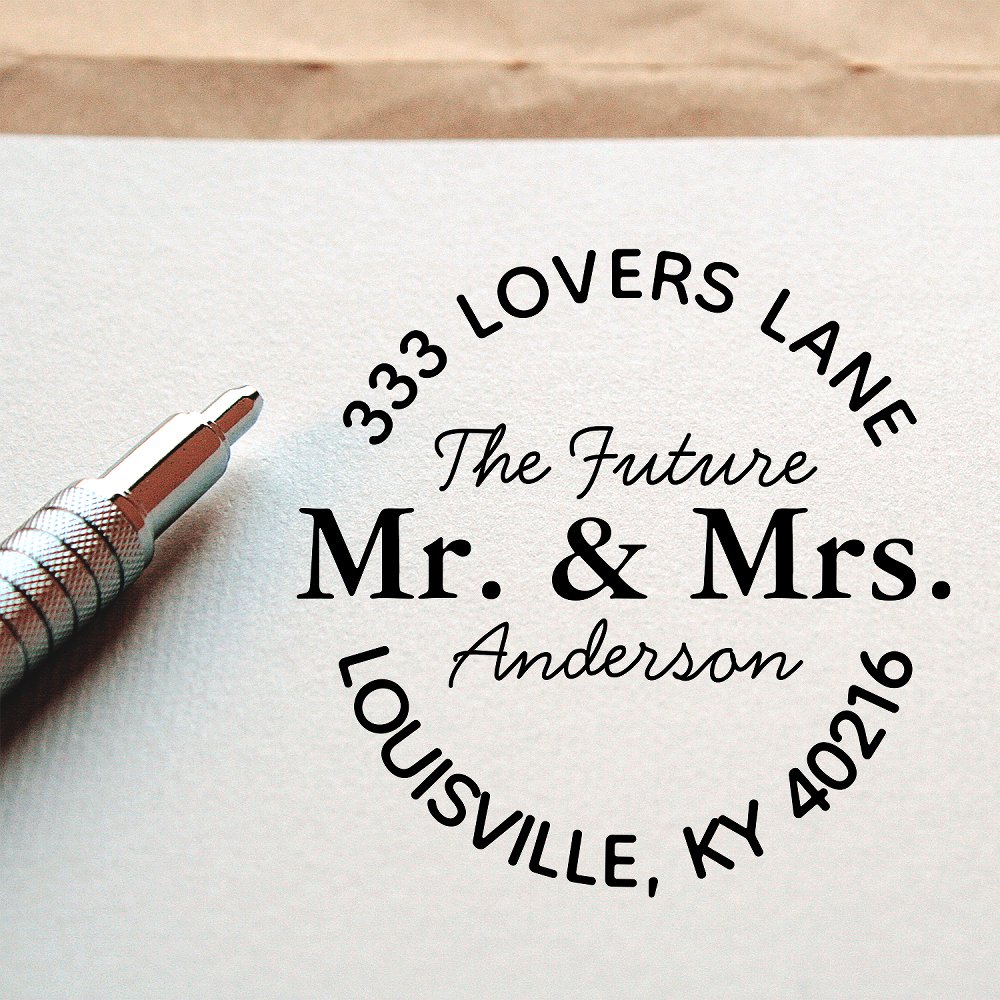 333 LOVERS LANE
The Future
Mr. & Mrs.
Anderson
LOUISVILLE, KY 40216